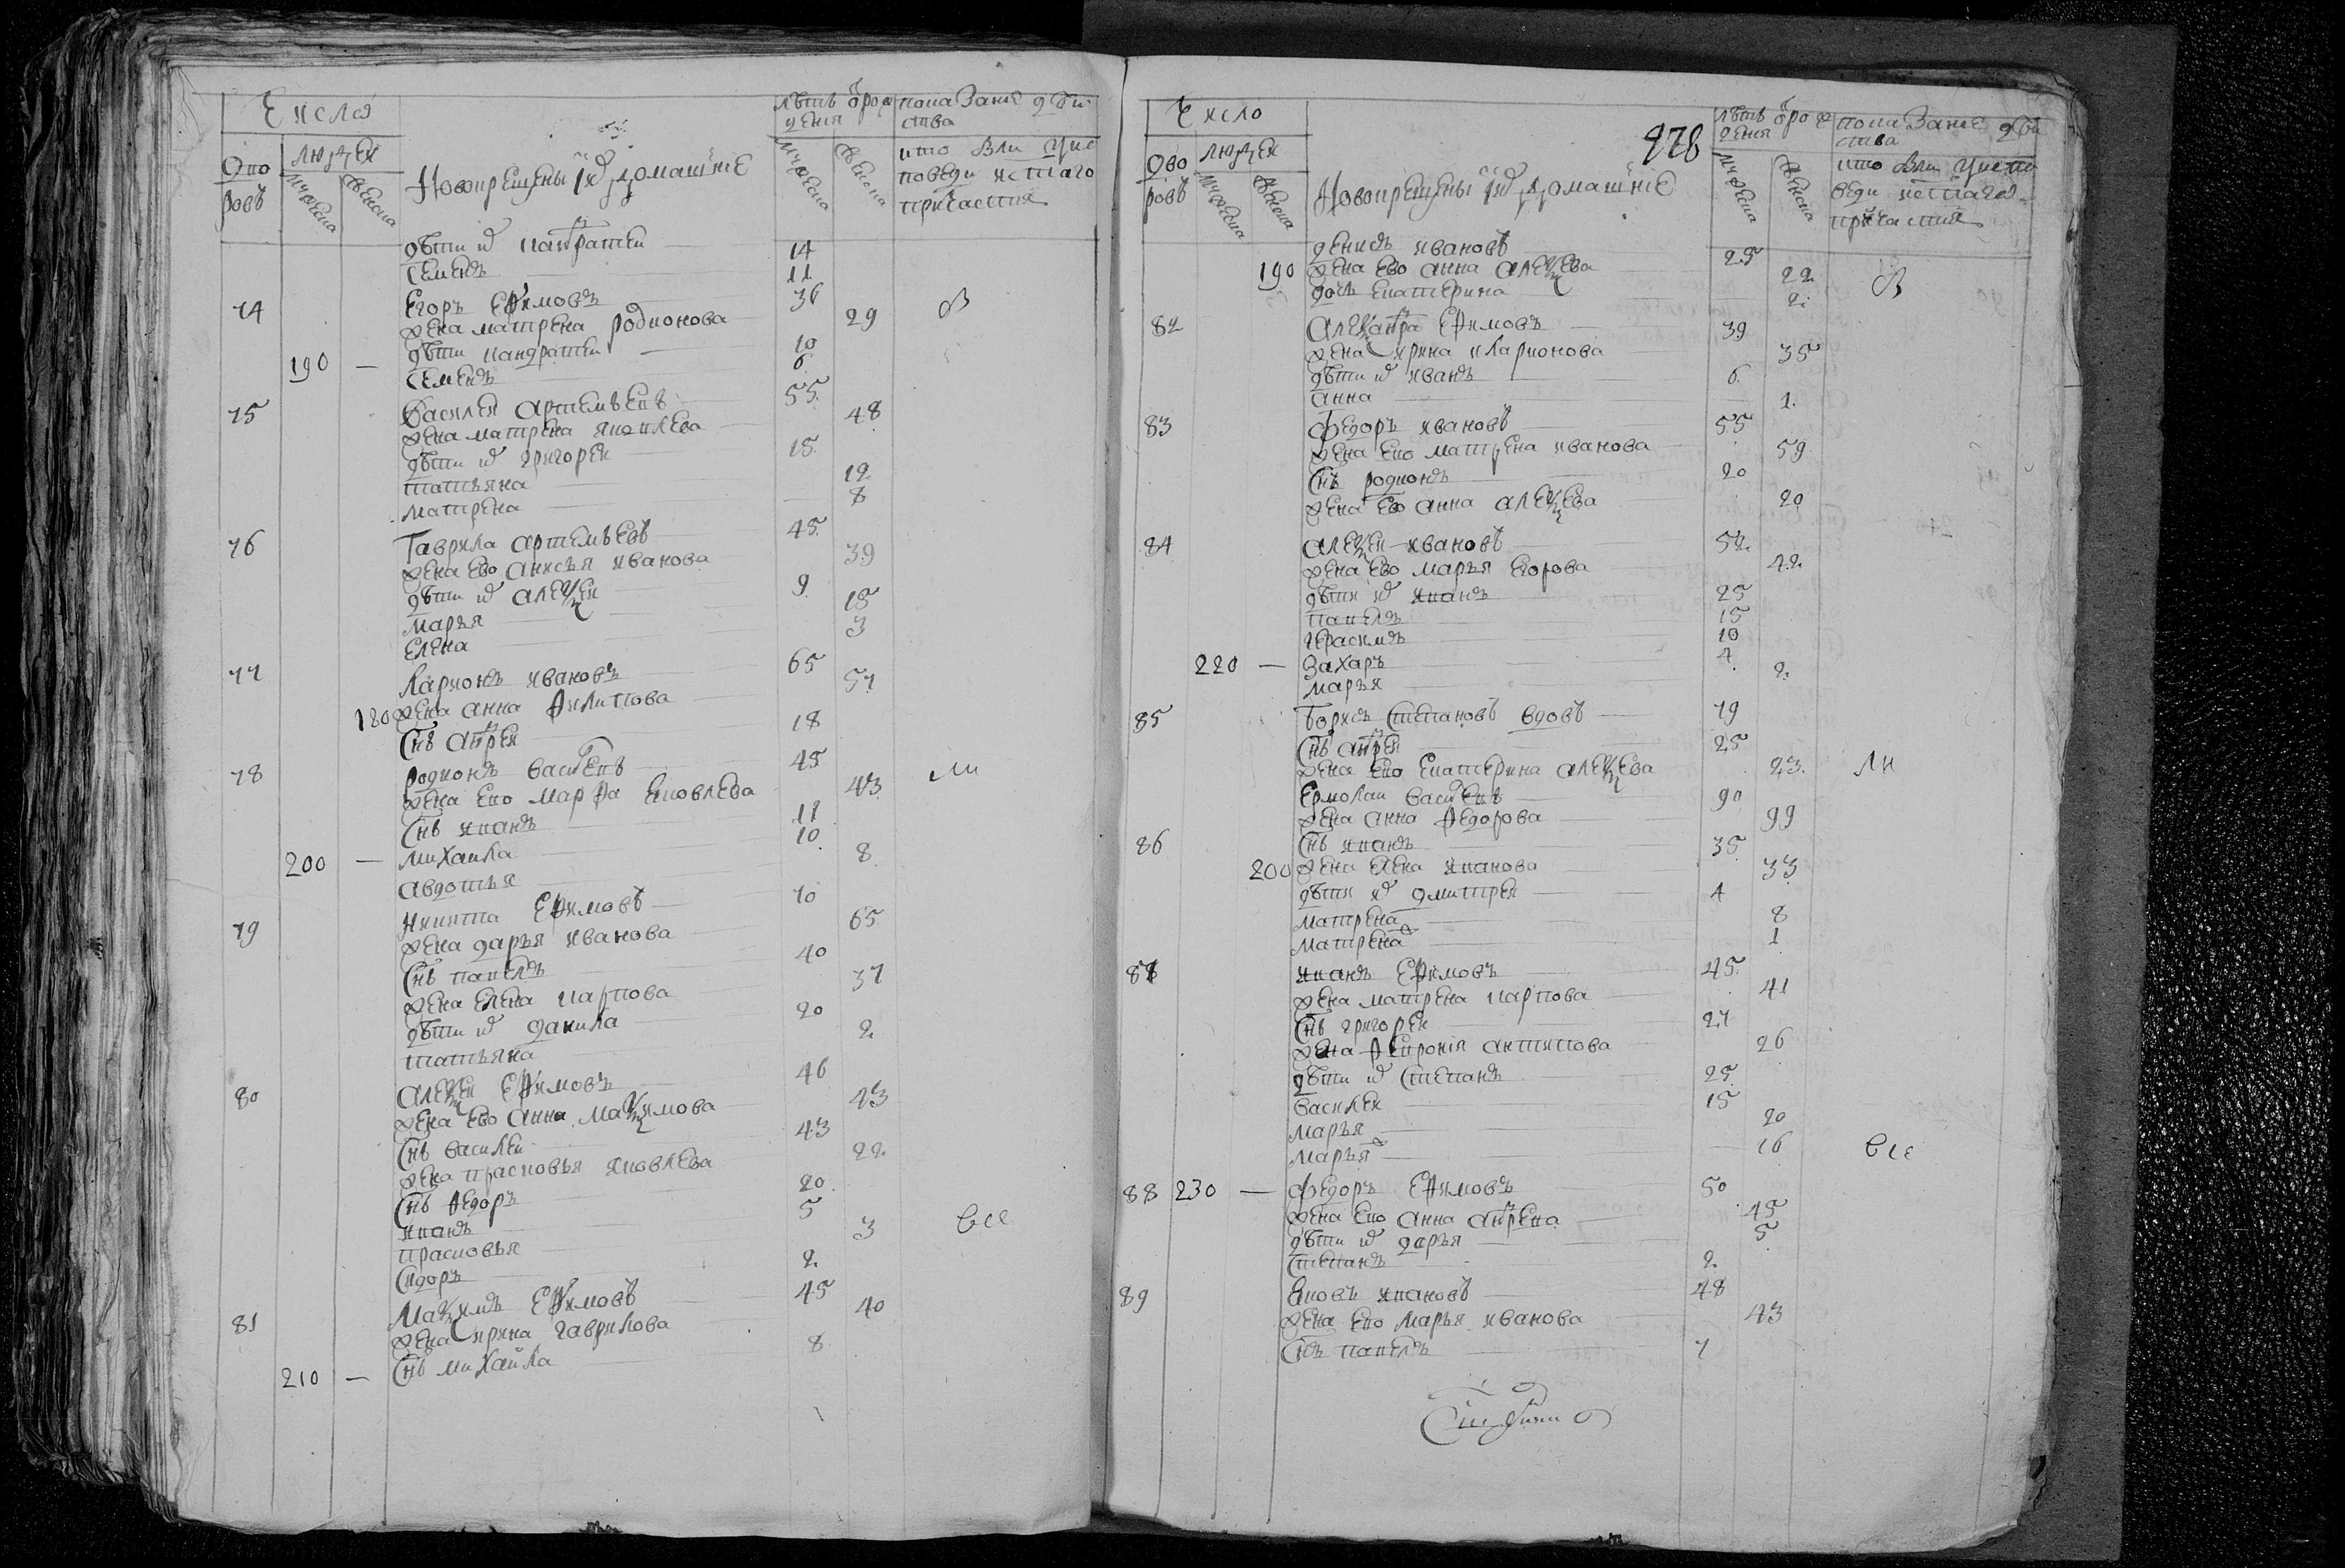 Число
Дворовъ
людей
мужеска
женска
Новокрещены их домашние
лѣтъ от рождения
мужеска
женска
показание действа
кто были у исповеди и святаго причастия
дѣти их Кондратеи 14
Семенъ 11
74 Егоръ Ефимовъ 36
жена матрена родионова 29
190 — дѣти кандратеи 10
Семенъ 6
75 Василеи Артемьевъ 55
жена матрена яковлева 48
дѣти их григореи 15
татьяна 12
матрена 8
76 Гаврила артемьевъ 45
жена ево анисья иванова 39
дѣти их алеѯеи 9
марья 15
елена 3
77 Ларионъ ивановъ 65
180 жена анна филипова 57
снъ андреи 18
78 родионъ васильевъ 45
жена ево марфа яковлева 43
снъ иванъ 11
200 — михаила 10
авдотья 8
79 никита Ефимовъ 70
жена дарья иванова 65
снъ павелъ 40
жена елена карпова 37
дѣти их данила 20
татьяна 2
80 алеѯеи Ефимовъ 46
жена ево анна маѯимова 43
снъ василеи 43
жена прасковья яковлева 22
снъ федоръ 20
иванъ 5
прасковья 3 все
сидоръ 2
81 Маѯимъ Ефимовъ 45
жена ирина гаврилова 40
210 — снъ михаила 8
Число
Дворовъ
людей
мужеска
женска
Новокрещены их домашние
878
лѣтъ от рождения
мужеска
женска
показание действа
кто были у исповеди и святаго причастия
денисъ ивановъ 25
190 жена ево анна алеѯеева 22
дочь екатерина 2
82 Алеѯандра Ефимовъ 39
жена ирина иларионова 35
дѣти их иванъ 6
анна 1
83 Федоръ ивановъ 55
жена ево матрена иванова 59
снъ родионъ 20
жена ево анна алеѯеева 20
84 алеѯеи ивановъ 52
жена ево марья егорова 42
дѣти их иванъ 25
павелъ 15
герасимъ 10
220 — захаръ 4
марья 2
85 борисъ степановъ вдовъ 79
снъ андреи 25
жена ево екатерина алеѯеева 23
Ермолаи васильевъ 90
жена анна федорова 99
86 снъ иванъ 35
200 жена елена иванова 33
дѣти их дмитреи 4
матрена 8
матрена 1
87 иванъ Ефимовъ 45
жена матрена карпова 41
снъ григореи 27
жена феврония антипова 26
дѣти их степанъ 25
василеи 15
марья 20
марья 16 все
88 230 — федоръ Ефимовъ 50
жена ево анна андреева 45
дѣти их дарья 5
степанъ 2
89 яковъ ивановъ 48
жена ево марья иванова 43
снъ павелъ 7